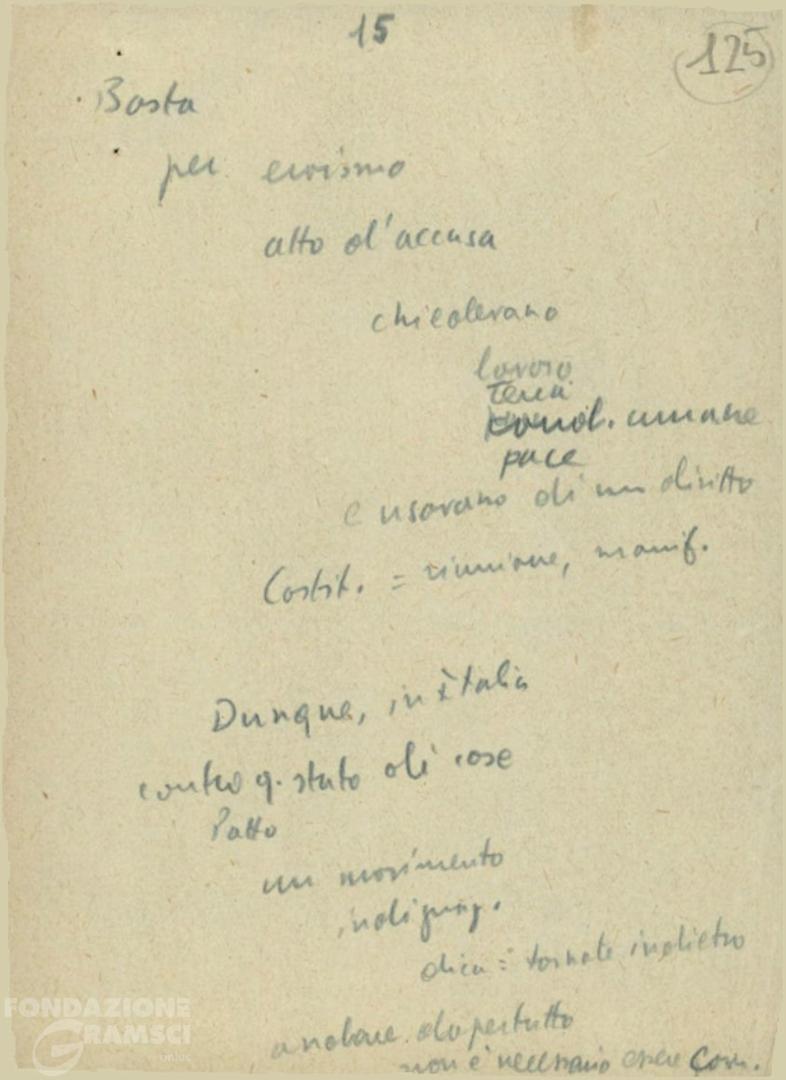 15
125
Basta
per eroismo
atto d'accusa
chiedevano
lavoro
terra
cond. umane
pace
e usavano di un diritto
Costit. = riunione, manif.
Dunque, in Italia
contro q. stato di cose
Patto
un movimento
indignaz.
dica: tornate indietro
andare dapertutto
non è necessario essere Com.
FONDAZIONE
GRAMSCI
onlus